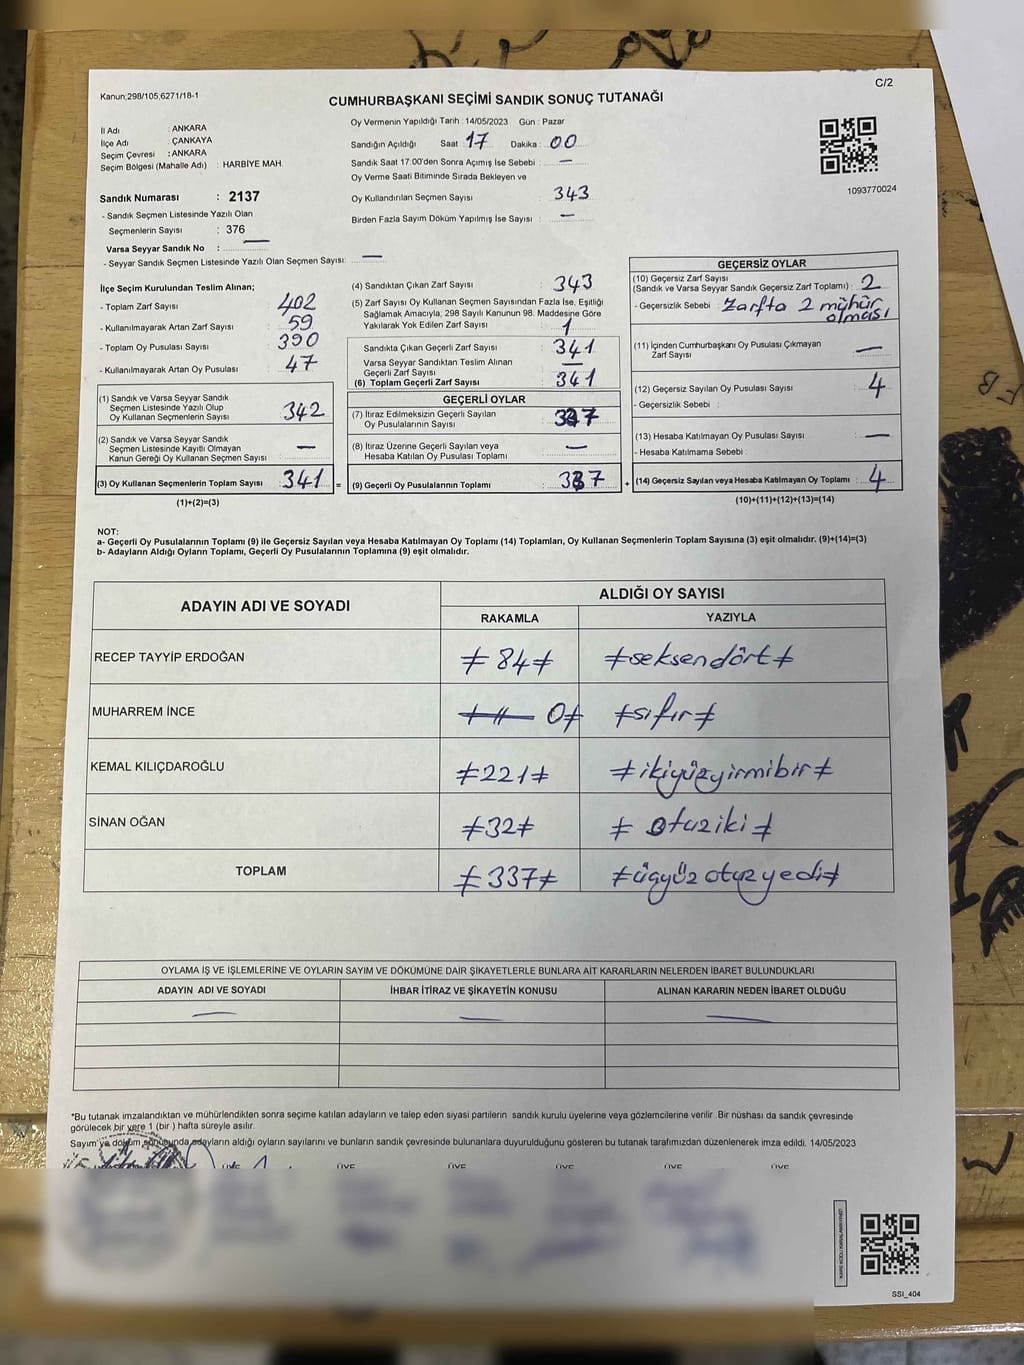 Kanun;298/105;6271/18-1
C/2
CUMHURBAŞKANI SEÇİMİ SANDIK SONUÇ TUTANAĞI
İl Adı : ANKARA
İlçe Adı : ÇANKAYA
Seçim Çevresi : ANKARA
Seçim Bölgesi (Mahalle Adı) : HARBİYE MAH.
Sandık Numarası : 2137
- Sandık Seçmen Listesinde Yazılı Olan
Seçmenlerin Sayısı : 376
Varsa Seyyar Sandık No : —
- Seyyar Sandık Seçmen Listesinde Yazılı Olan Seçmen Sayısı: —
Oy Vermenin Yapıldığı Tarih : 14/05/2023 Gün : Pazar
Sandığın Açıldığı Saat 17 Dakika : 00
Sandık Saat 17:00'den Sonra Açımış İse Sebebi : —
Oy Verme Saati Bitiminde Sırada Bekleyen ve
Oy Kullandırılan Seçmen Sayısı : 343
Birden Fazla Sayım Döküm Yapılmış İse Sayısı : —
1093770024
İlçe Seçim Kurulundan Teslim Alınan;
- Toplam Zarf Sayısı : 402
- Kullanılmayarak Artan Zarf Sayısı : 59
- Toplam Oy Pusulası Sayısı : 390
- Kullanılmayarak Artan Oy Pusulası : 47
(1) Sandık ve Varsa Seyyar Sandık
Seçmen Listesinde Yazılı Olup
Oy Kullanan Seçmenlerin Sayısı : 342
(2) Sandık ve Varsa Seyyar Sandık
Seçmen Listesinde Kayıtlı Olmayan
Kanun Gereği Oy Kullanan Seçmen Sayısı : —
(3) Oy Kullanan Seçmenlerin Toplam Sayısı : 341 =
(1)+(2)=(3)
(4) Sandıktan Çıkan Zarf Sayısı : 343
(5) Zarf Sayısı Oy Kullanan Seçmen Sayısından Fazla İse, Eşitliği
Sağlamak Amacıyla, 298 Sayılı Kanunun 98. Maddesine Göre
Yakılarak Yok Edilen Zarf Sayısı : 1
Sandıkta Çıkan Geçerli Zarf Sayısı : 341
Varsa Seyyar Sandıktan Teslim Alınan
Geçerli Zarf Sayısı : —
(6) Toplam Geçerli Zarf Sayısı : 341
GEÇERLİ OYLAR
(7) İtiraz Edilmeksizin Geçerli Sayılan
Oy Pusulalarının Sayısı : 337
(8) İtiraz Üzerine Geçerli Sayılan veya
Hesaba Katılan Oy Pusulası Toplamı : —
(9) Geçerli Oy Pusulalarının Toplamı : 337 +
GEÇERSİZ OYLAR
(10) Geçersiz Zarf Sayısı
(Sandık ve Varsa Seyyar Sandık Geçersiz Zarf Toplamı) : 2
- Geçersizlik Sebebi : Zarfta 2 mühür
olması
(11) İçinden Cumhurbaşkanı Oy Pusulası Çıkmayan
Zarf Sayısı : —
(12) Geçersiz Sayılan Oy Pusulası Sayısı : 4
- Geçersizlik Sebebi :
(13) Hesaba Katılmayan Oy Pusulası Sayısı : —
- Hesaba Katılmama Sebebi :
(14) Geçersiz Sayılan veya Hesaba Katılmayan Oy Toplamı : 4
(10)+(11)+(12)+(13)=(14)
NOT:
a- Geçerli Oy Pusulalarının Toplamı (9) ile Geçersiz Sayılan veya Hesaba Katılmayan Oy Toplamı (14) Toplamları, Oy Kullanan Seçmenlerin Toplam Sayısına (3) eşit olmalıdır. (9)+(14)=(3)
b- Adayların Aldığı Oyların Toplamı, Geçerli Oy Pusulalarının Toplamına (9) eşit olmalıdır.
ADAYIN ADI VE SOYADI
ALDIĞI OY SAYISI
RAKAMLA YAZIYLA
RECEP TAYYİP ERDOĞAN ≠ 84 ≠ ≠ seksendört ≠
MUHARREM İNCE 0 ≠ ≠ sıfır ≠
KEMAL KILIÇDAROĞLU ≠ 221 ≠ ≠ ikiyüzyirmibir ≠
SİNAN OĞAN ≠ 32 ≠ ≠ otuziki ≠
TOPLAM ≠ 337 ≠ ≠ üçyüz otuz yedi ≠
OYLAMA İŞ VE İŞLEMLERİNE VE OYLARIN SAYIM VE DÖKÜMÜNE DAİR ŞİKAYETLERLE BUNLARA AİT KARARLARIN NELERDEN İBARET BULUNDUKLARI
ADAYIN ADI VE SOYADI İHBAR İTİRAZ VE ŞİKAYETİN KONUSU ALINAN KARARIN NEDEN İBARET OLDUĞU
— — —
*Bu tutanak imzalandıktan ve mühürlendikten sonra seçime katılan adayların ve talep eden siyasi partilerin sandık kurulu üyelerine veya gözlemcilerine verilir. Bir nüshası da sandık çevresinde
görülecek bir yere 1 (bir ) hafta süreyle asılır.
Sayım ve döküm sonucunda adayların aldığı oyların sayılarını ve bunların sandık çevresinde bulunanlara duyurulduğunu gösteren bu tutanak tarafımızdan düzenlenerek imza edildi. 14/05/2023
ÜYE ÜYE ÜYE ÜYE ÜYE ÜYE
SSI_404